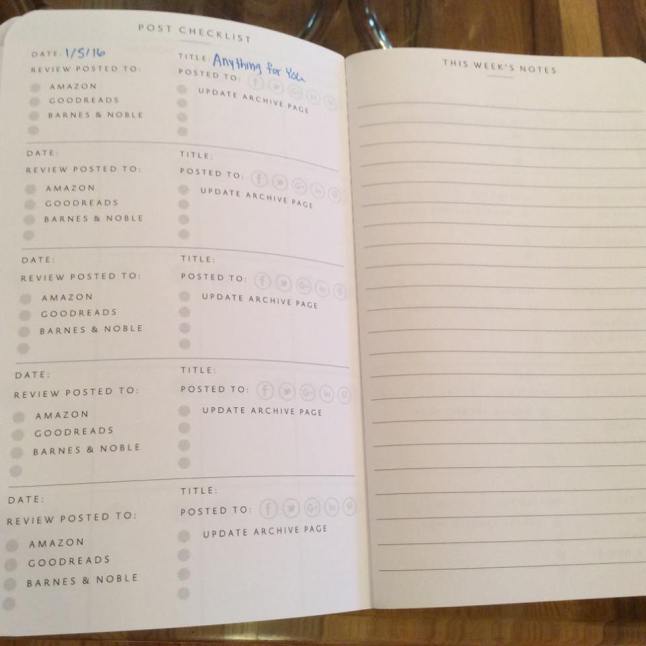 POST CHECKLIST
DATE: 1/5/16
TITLE: Anything for You
REVIEW POSTED TO:
POSTED TO: f G+ in
AMAZON
UPDATE ARCHIVE PAGE
GOODREADS
BARNES & NOBLE
DATE:
TITLE:
REVIEW POSTED TO:
POSTED TO: f G+ in
AMAZON
UPDATE ARCHIVE PAGE
GOODREADS
BARNES & NOBLE
DATE:
TITLE:
REVIEW POSTED TO:
POSTED TO: f G+ in
AMAZON
UPDATE ARCHIVE PAGE
GOODREADS
BARNES & NOBLE
DATE:
TITLE:
REVIEW POSTED TO:
POSTED TO: f G+ in
AMAZON
UPDATE ARCHIVE PAGE
GOODREADS
BARNES & NOBLE
DATE:
TITLE:
REVIEW POSTED TO:
POSTED TO: f G+ in
AMAZON
UPDATE ARCHIVE PAGE
GOODREADS
BARNES & NOBLE
THIS WEEK'S NOTES